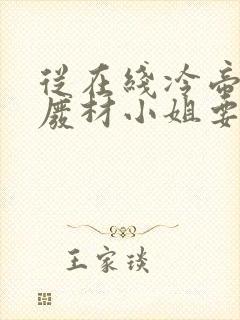 從在綫冷帝
廢材小姐要
王家琰